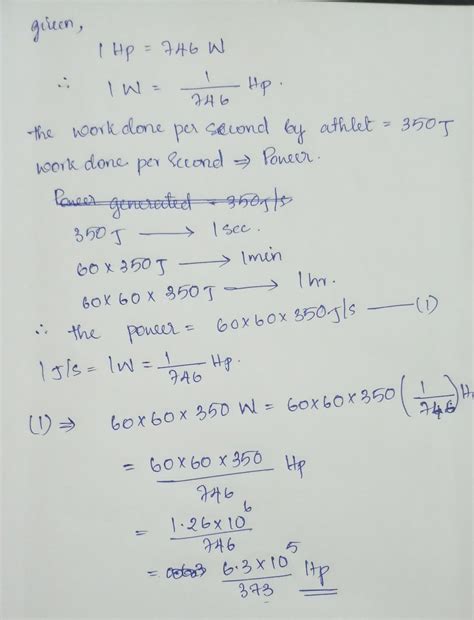 given,
1 Hp = 746 W
∴ 1 W = 1/746 Hp.
the work done per second by athlet = 350J
work done per second ⇒ Power.
Power generated = 350J/s
350J ⟶ 1 sec.
60×350J ⟶ 1min
60×60×350J ⟶ 1hr.
∴ the power = 60×60×350J/s —(1)
1 J/s = 1W = 1/746 Hp.
(1) ⇒ 60×60×350 W = 60×60×350 (1/746) H
= 60×60×350/746 Hp
= 1.26×10^6/746
= 6.3×10^5/373 Hp